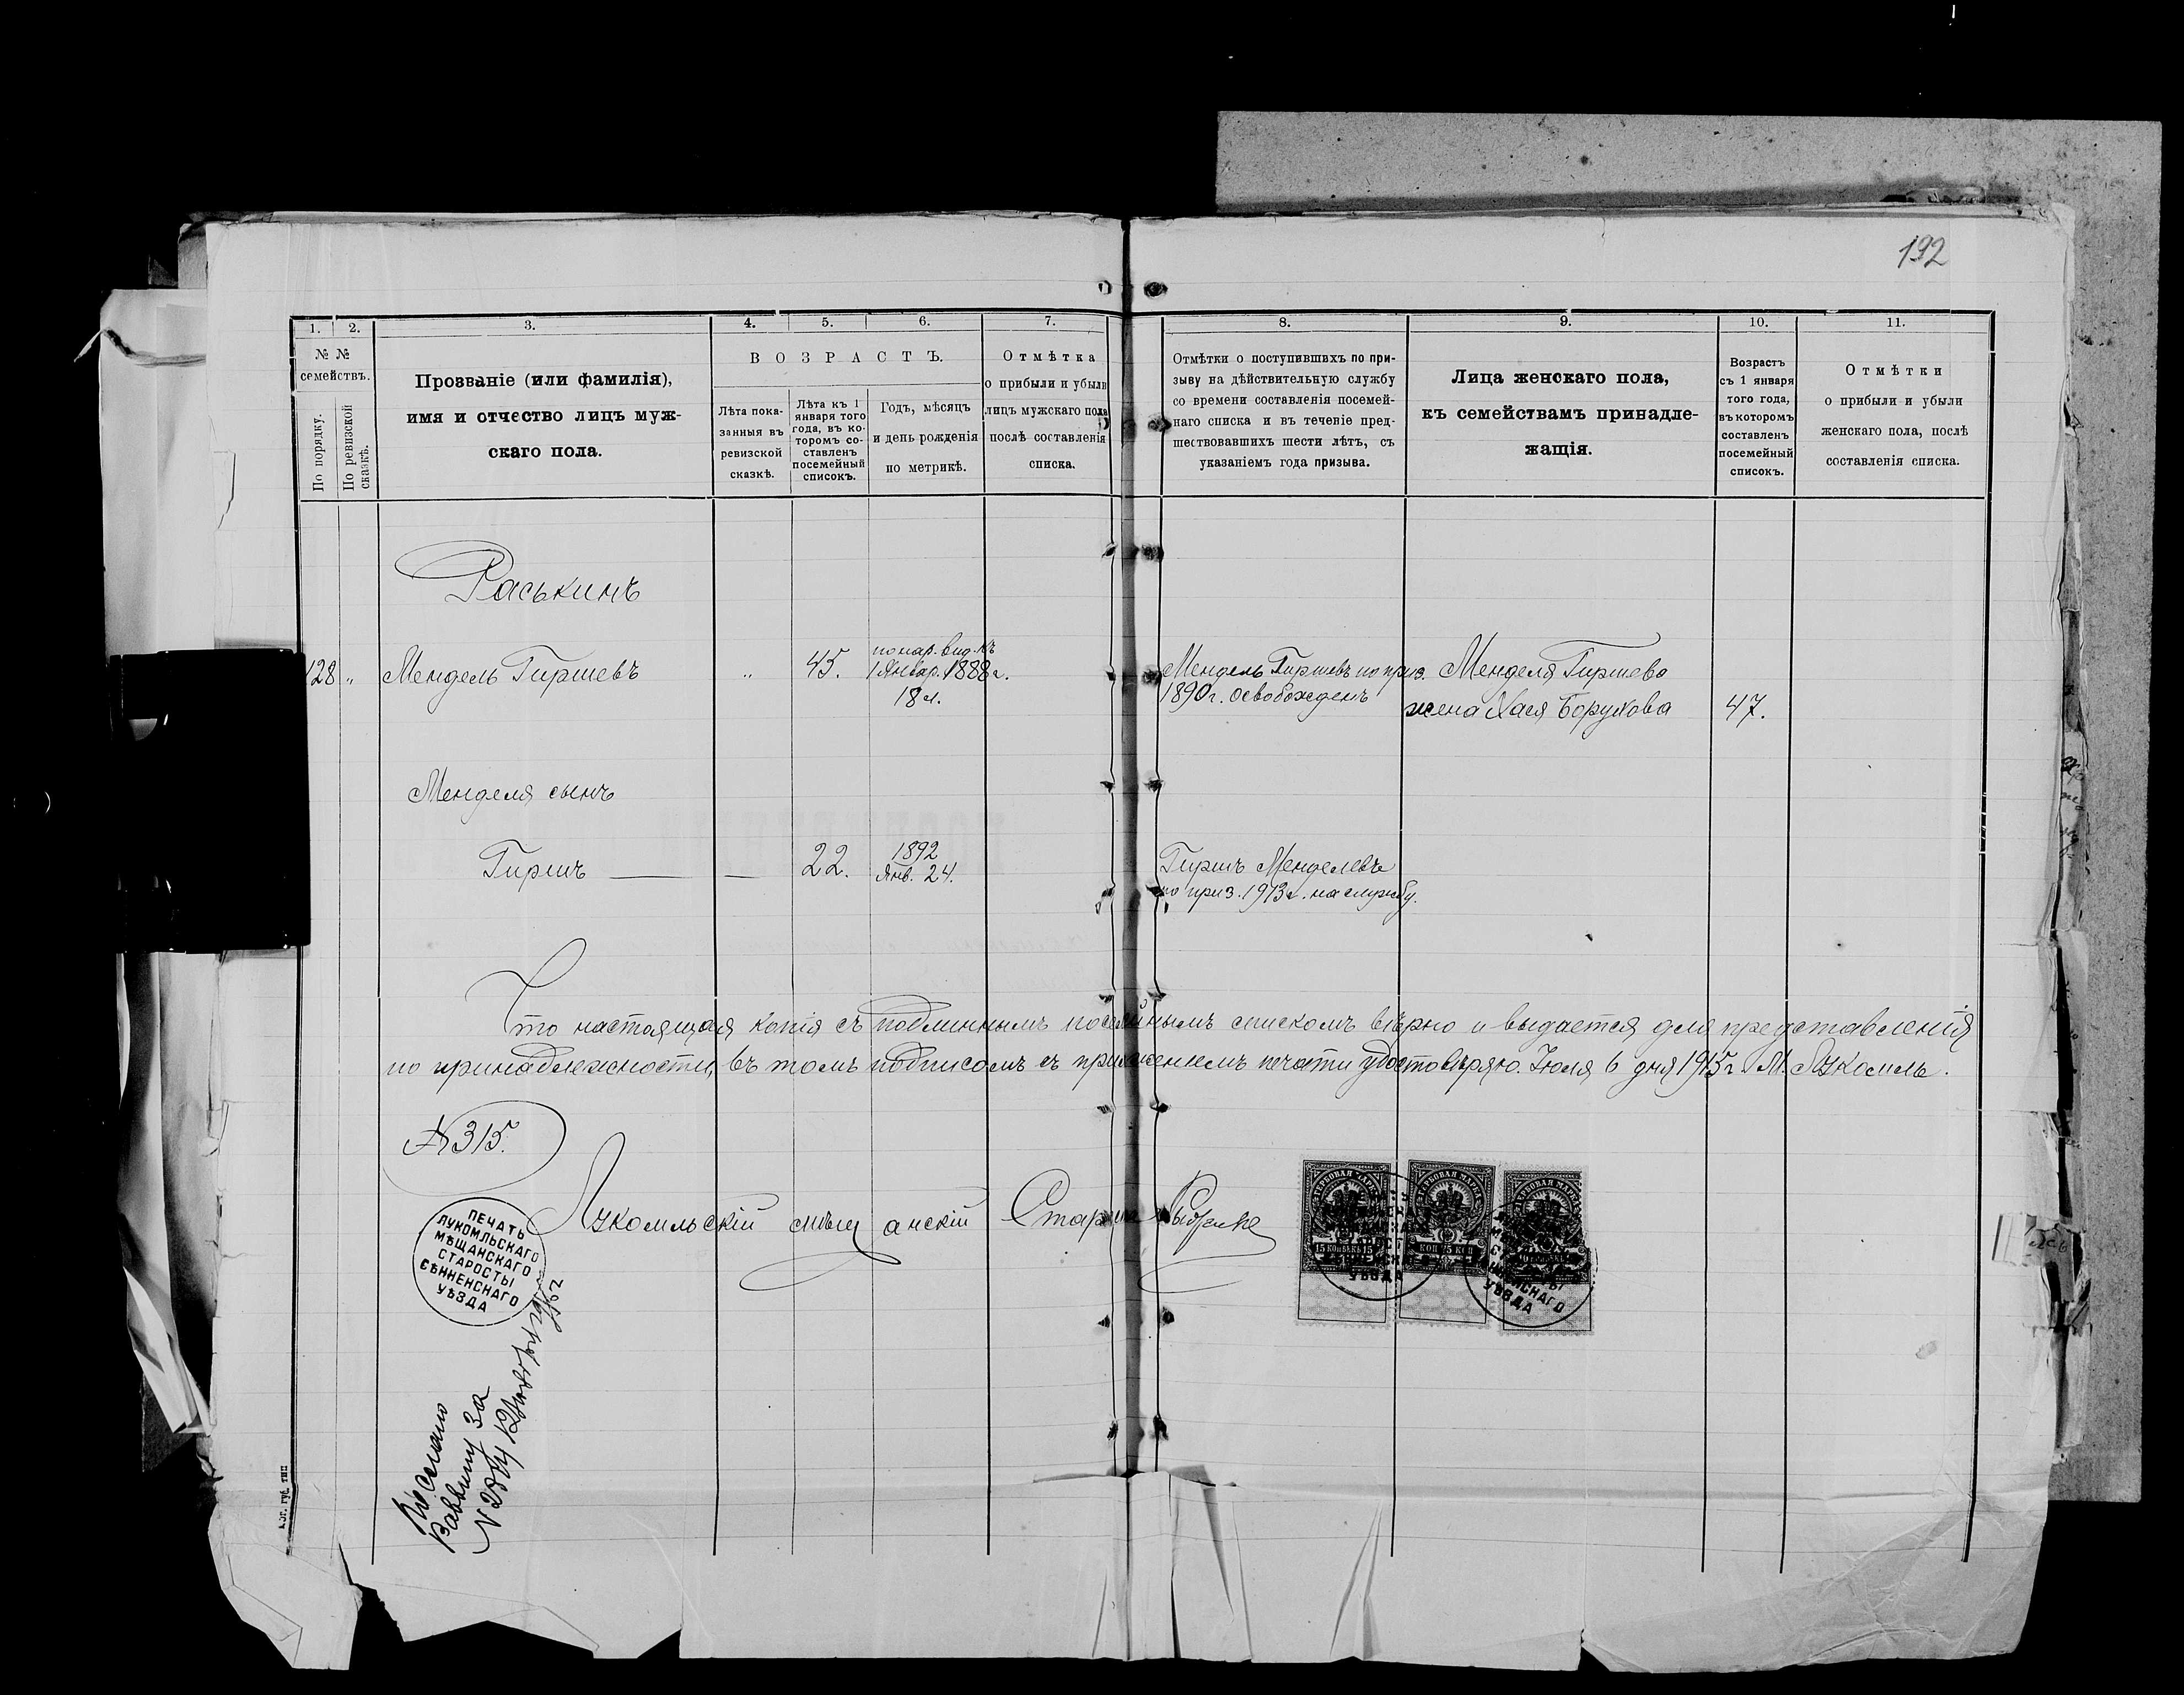 192
1.
2.
3.
4.
5.
6.
7.
8.
9.
10.
11.
№ №
семействъ.
По порядку.
По ревизской
сказкѣ.
Прозваніе (или фамилія),
имя и отчество лицъ муж-
скаго пола.
ВОЗРАСТЪ.
Лѣта пока-
занныя въ
ревизской
сказкѣ.
Лѣта къ 1
января того
года, въ ко-
торомъ со-
ставленъ
посемейный
списокъ.
Годъ, мѣсяцъ
и день рожденія
по метрикѣ.
Отмѣтка
о прибыли и убыли
лицъ мужскаго пола
послѣ составленія
списка.
Отмѣтки о поступившихъ по при-
зыву на дѣйствительную службу
со времени составленія посемей-
наго списка и въ теченіе пред-
шествовавшихъ шести лѣтъ, съ
указаніемъ года призыва.
Лица женскаго пола,
къ семействамъ принадле-
жащія.
Возрастъ
съ 1 января
того года,
въ которомъ
составленъ
посемейный
списокъ.
Отмѣтки
о прибыли и убыли
женскаго пола, послѣ
составленія списка.
Раськинъ
128 „ Мендель Гиршевъ „ 45. по нар. вид. къ
1 Январ. 1888 г.
18 л.
Мендель Гиршевъ по приз.
1890 г. освобожденъ
Менделя Гиршева
жена Хася Борухова 47.
Менделя сынъ
Гиршъ — — 22. 1892
Янв. 24.
Гиршъ Менделевъ
по приз. 1913 г. на службу.
Что настоящая копія съ подлиннымъ посемейнымъ спискомъ вѣрно и выдается для представленія
по принадлежности, въ томъ подписомъ съ приложеніемъ печати удостовѣряю. Іюля 6 дня 1915 г. М. Лукомль.
№ 315.
Лукомльскій мѣщанскій Староста
ПЕЧАТЬ
ЛУКОМЛЬСКАГО
МѢЩАНСКАГО
СТАРОСТЫ
СѢННЕНСКАГО
УѢЗДА
ГЕРБОВАЯ МАРКА
15 КОПѢЕКЪ 15
УѢЗДА
ГЕРБОВАЯ МАРКА
ГЕРБОВАЯ МАРКА
СѢННЕНСКАГО
УѢЗДА
Послано
за
губ. тип